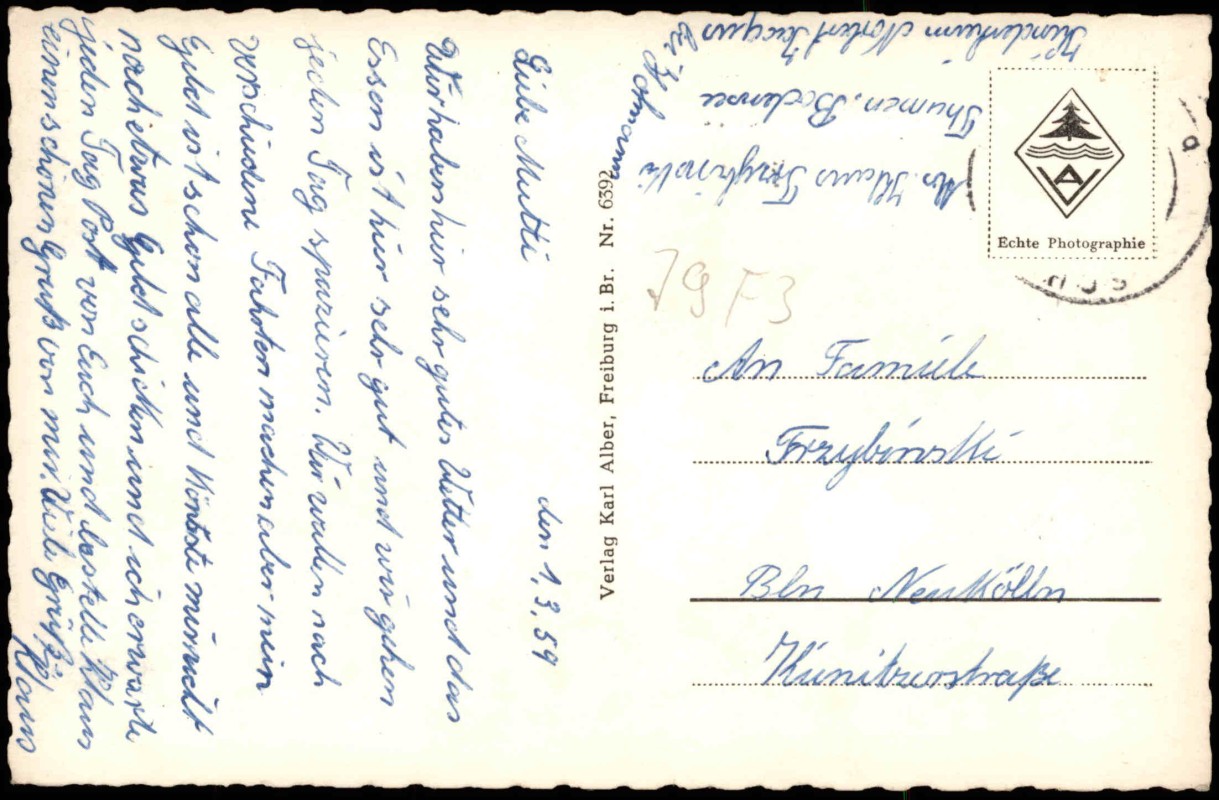 den 1.3.59
Liebe Mutti
Wir haben hier sehr gutes Wetter und das
Essen ist hier sehr gut und wir gehen
jeden Tag spazieren. Wir wollen noch
verschiedene Fahrten machen aber mein
Geld ist schon alle und könnte mir nicht
noch etwas Geld schicken und ich erwarte
jeden Tag Post von Euch und bestelle Klaus
einen schönen Gruß von mir. Viele Grüße
Klaus
Verlag Karl Alber, Freiburg i. Br. Nr. 6392
Abs. Klaus
Bodensee
Kinderheim Norbert
Echte Photographie
79 F3
An Familie
Frzybinski
Bln Neukölln